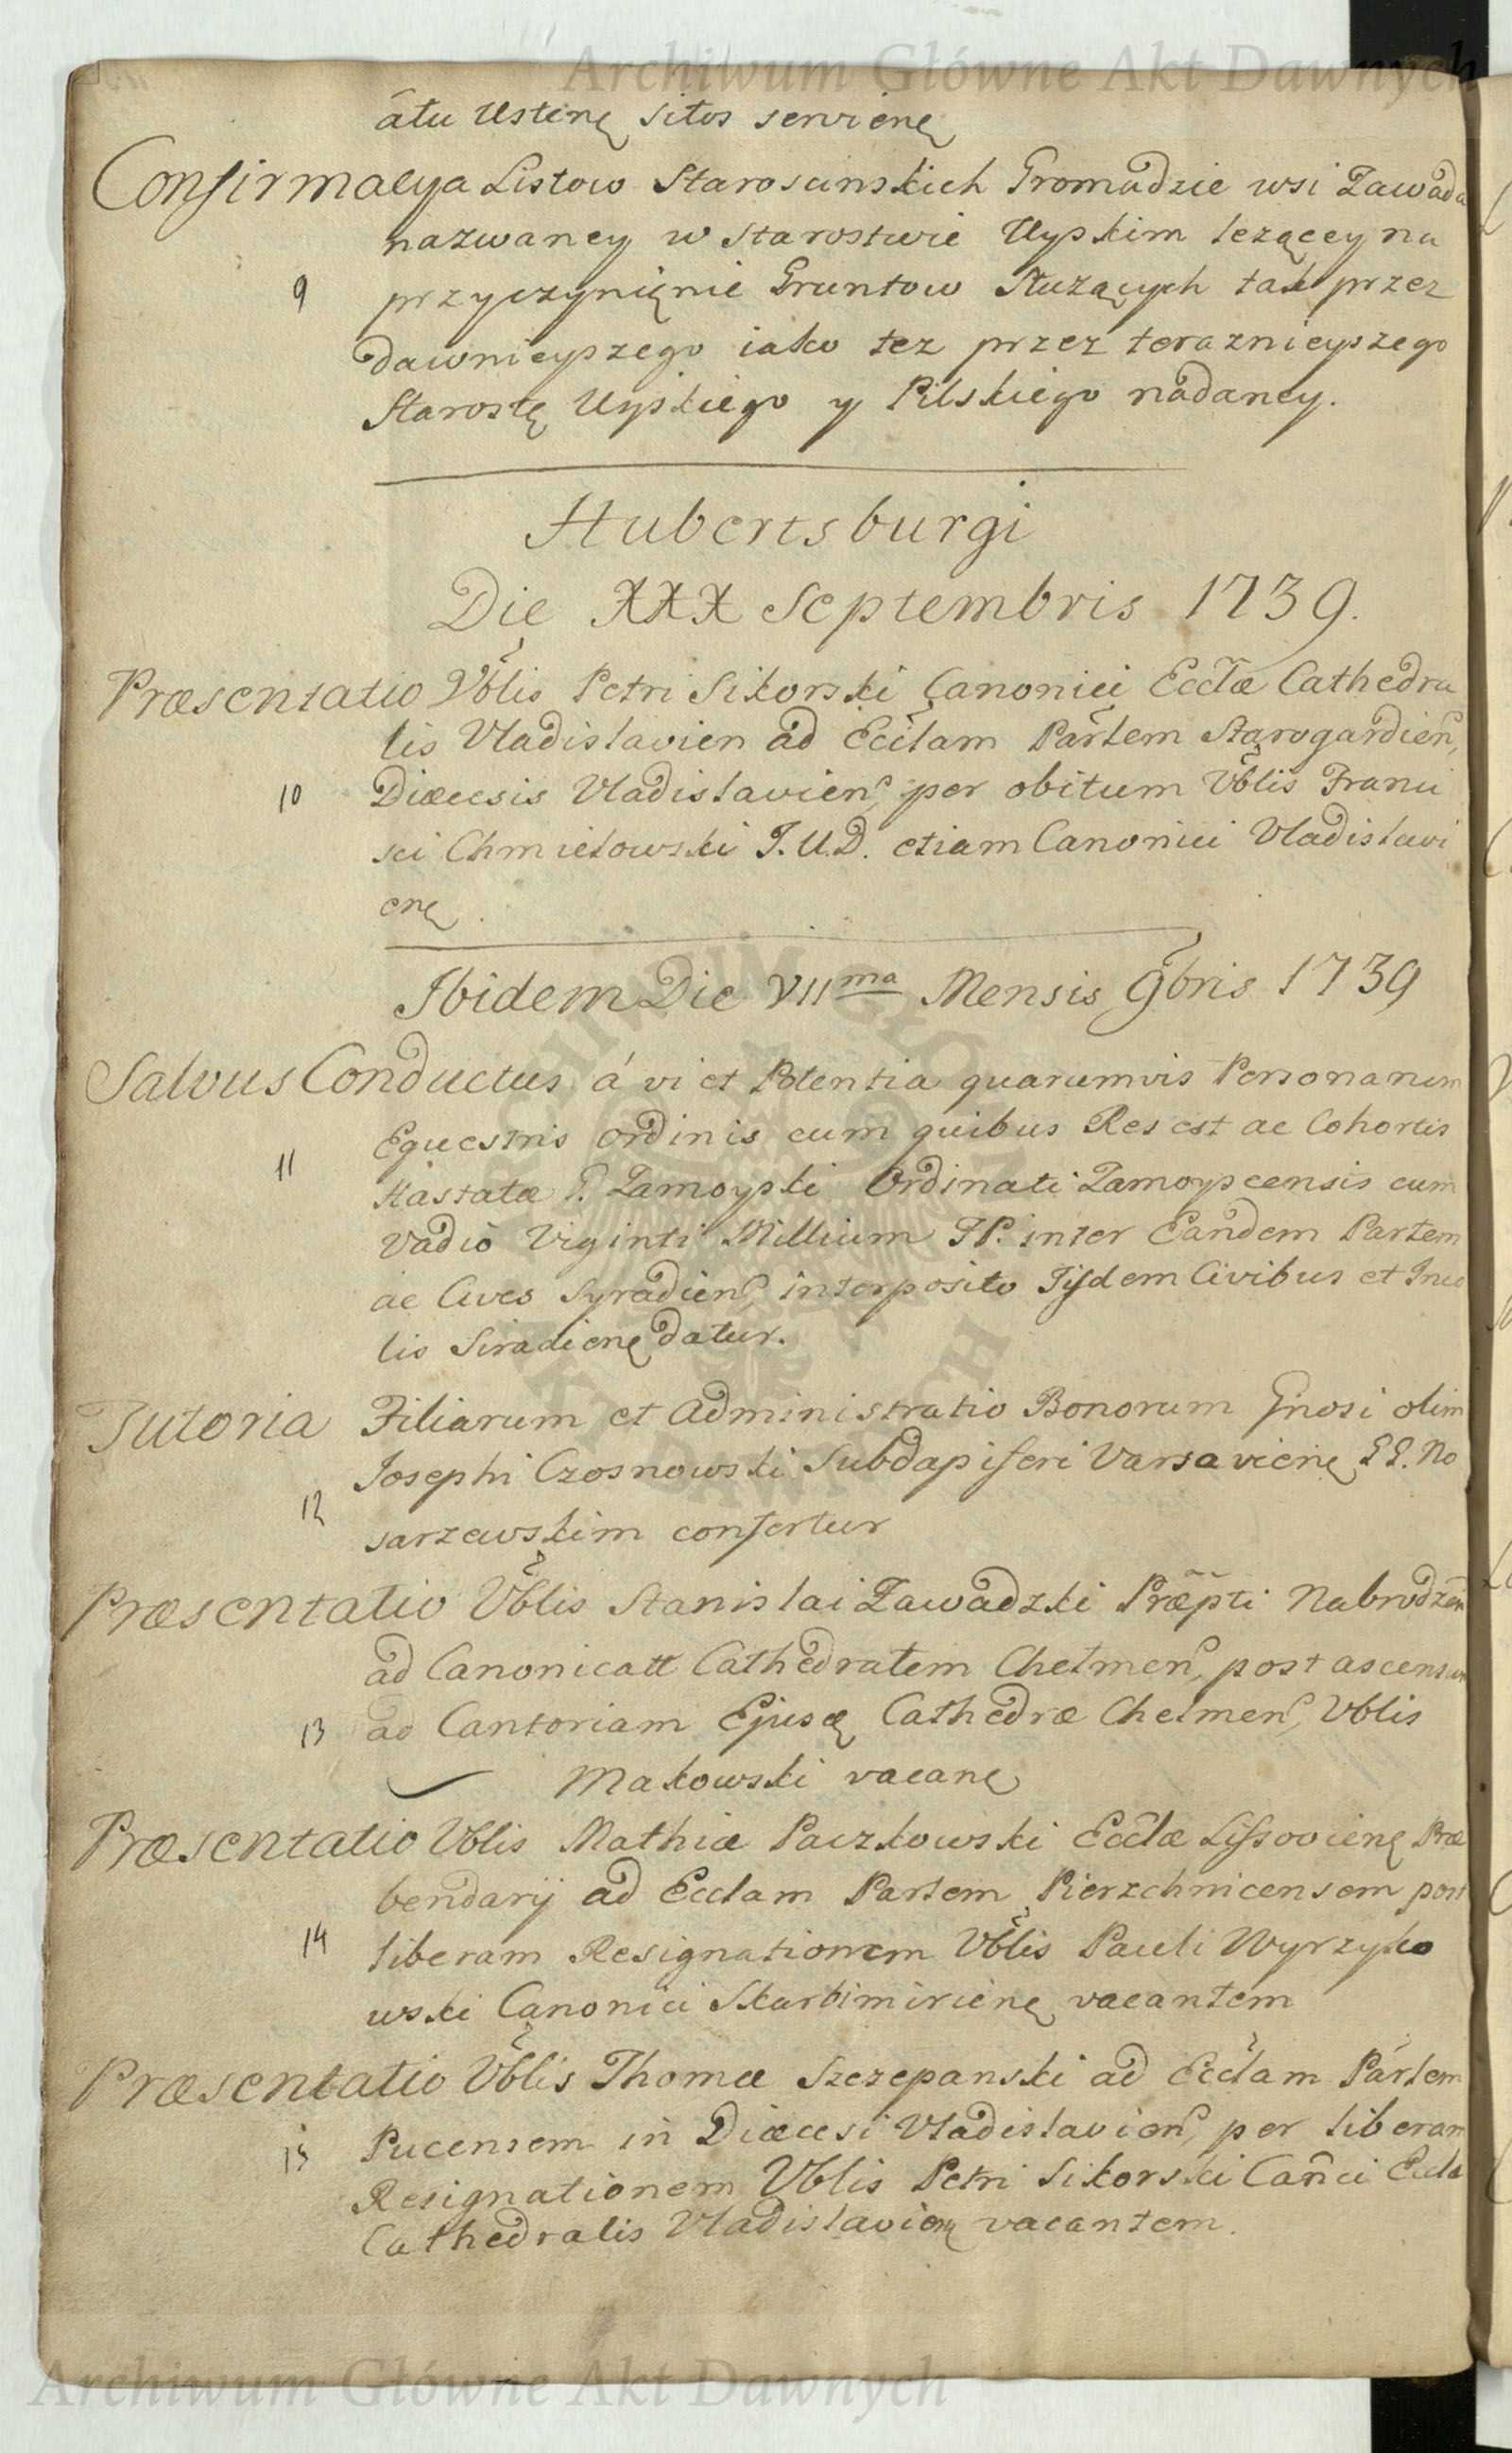 Archiwum Główne Akt Dawnych
átu Ustinę sitos servienę
Confirmacya Listow Staroscinskich Gromadzie wsi Zawada
nazwaney w Starostwie Uyskim lezącey na
9 przyczynięnie Gruntow Słuzących tak przez
dawnieyszego iako tez przez teraznieyszego
Starostę Uyskiego y Pilskiego nadaney.
Hubertsburgi
Die XXX Septembris 1739.
Præsentatio Vblis Petri Sikorski Canonici Ecclæ Cathedra
lis Vladislavien ad Ecclam Parlem Starogardien,
10 Diæcesis Vladislavien, per obitum Vblis Franci
sci Chmielowski J.U.D. etiam Canonici Vladislavi
enę
Ibidem Die VIIma Mensis 9bris 1739
Salvus Conductus á vi et Potentia quarumvis Personarum
Equestris ordinis cum quibus Res est ac Cohortis
11 Hastatæ G. Zamoyski Ordinati Zamoyscensis cum
vadio Viginti Millium FP. inter Eandem Partem
ac Cives Syradien, interposito Iisdem Civibus et Inco
lis Siradienę datur.
Tutoria Filiarum et Administratio Bonorum Gnosi olim
Josephi Czosnowski Subdapiferi Varsavienę GG. No
12 sarzewskim confertur
Præsentatio Vblis Stanislai Zawadzki Præpti Nabrodzen
ad Canonicatt Cathedralem Chelmen, post ascensum
13 ad Cantoriam Ejusę Cathedræ Chelmen, Vblis
Makowski vacanę
Præsentatio Vblis Mathiæ Paczkowski Ecclæ Lissovienę Præ
bendarij ad Ecclam Parlem Pierzchnicensem post
14 liberam Resignationem Vblis Pauli Wyrzyko
wski Canonici Skarbimirienę vacantem
Præsentatio Vblis Thomæ Szczepanski ad Ecclam Parlem
15 Pucensem in Diæcesi Vladislavien, per liberam
Resignationem Vblis Petri Sikorski Canci Eccla
Cathedralis Vladislavienę vacantem.
Archiwum Główne Akt Dawnych